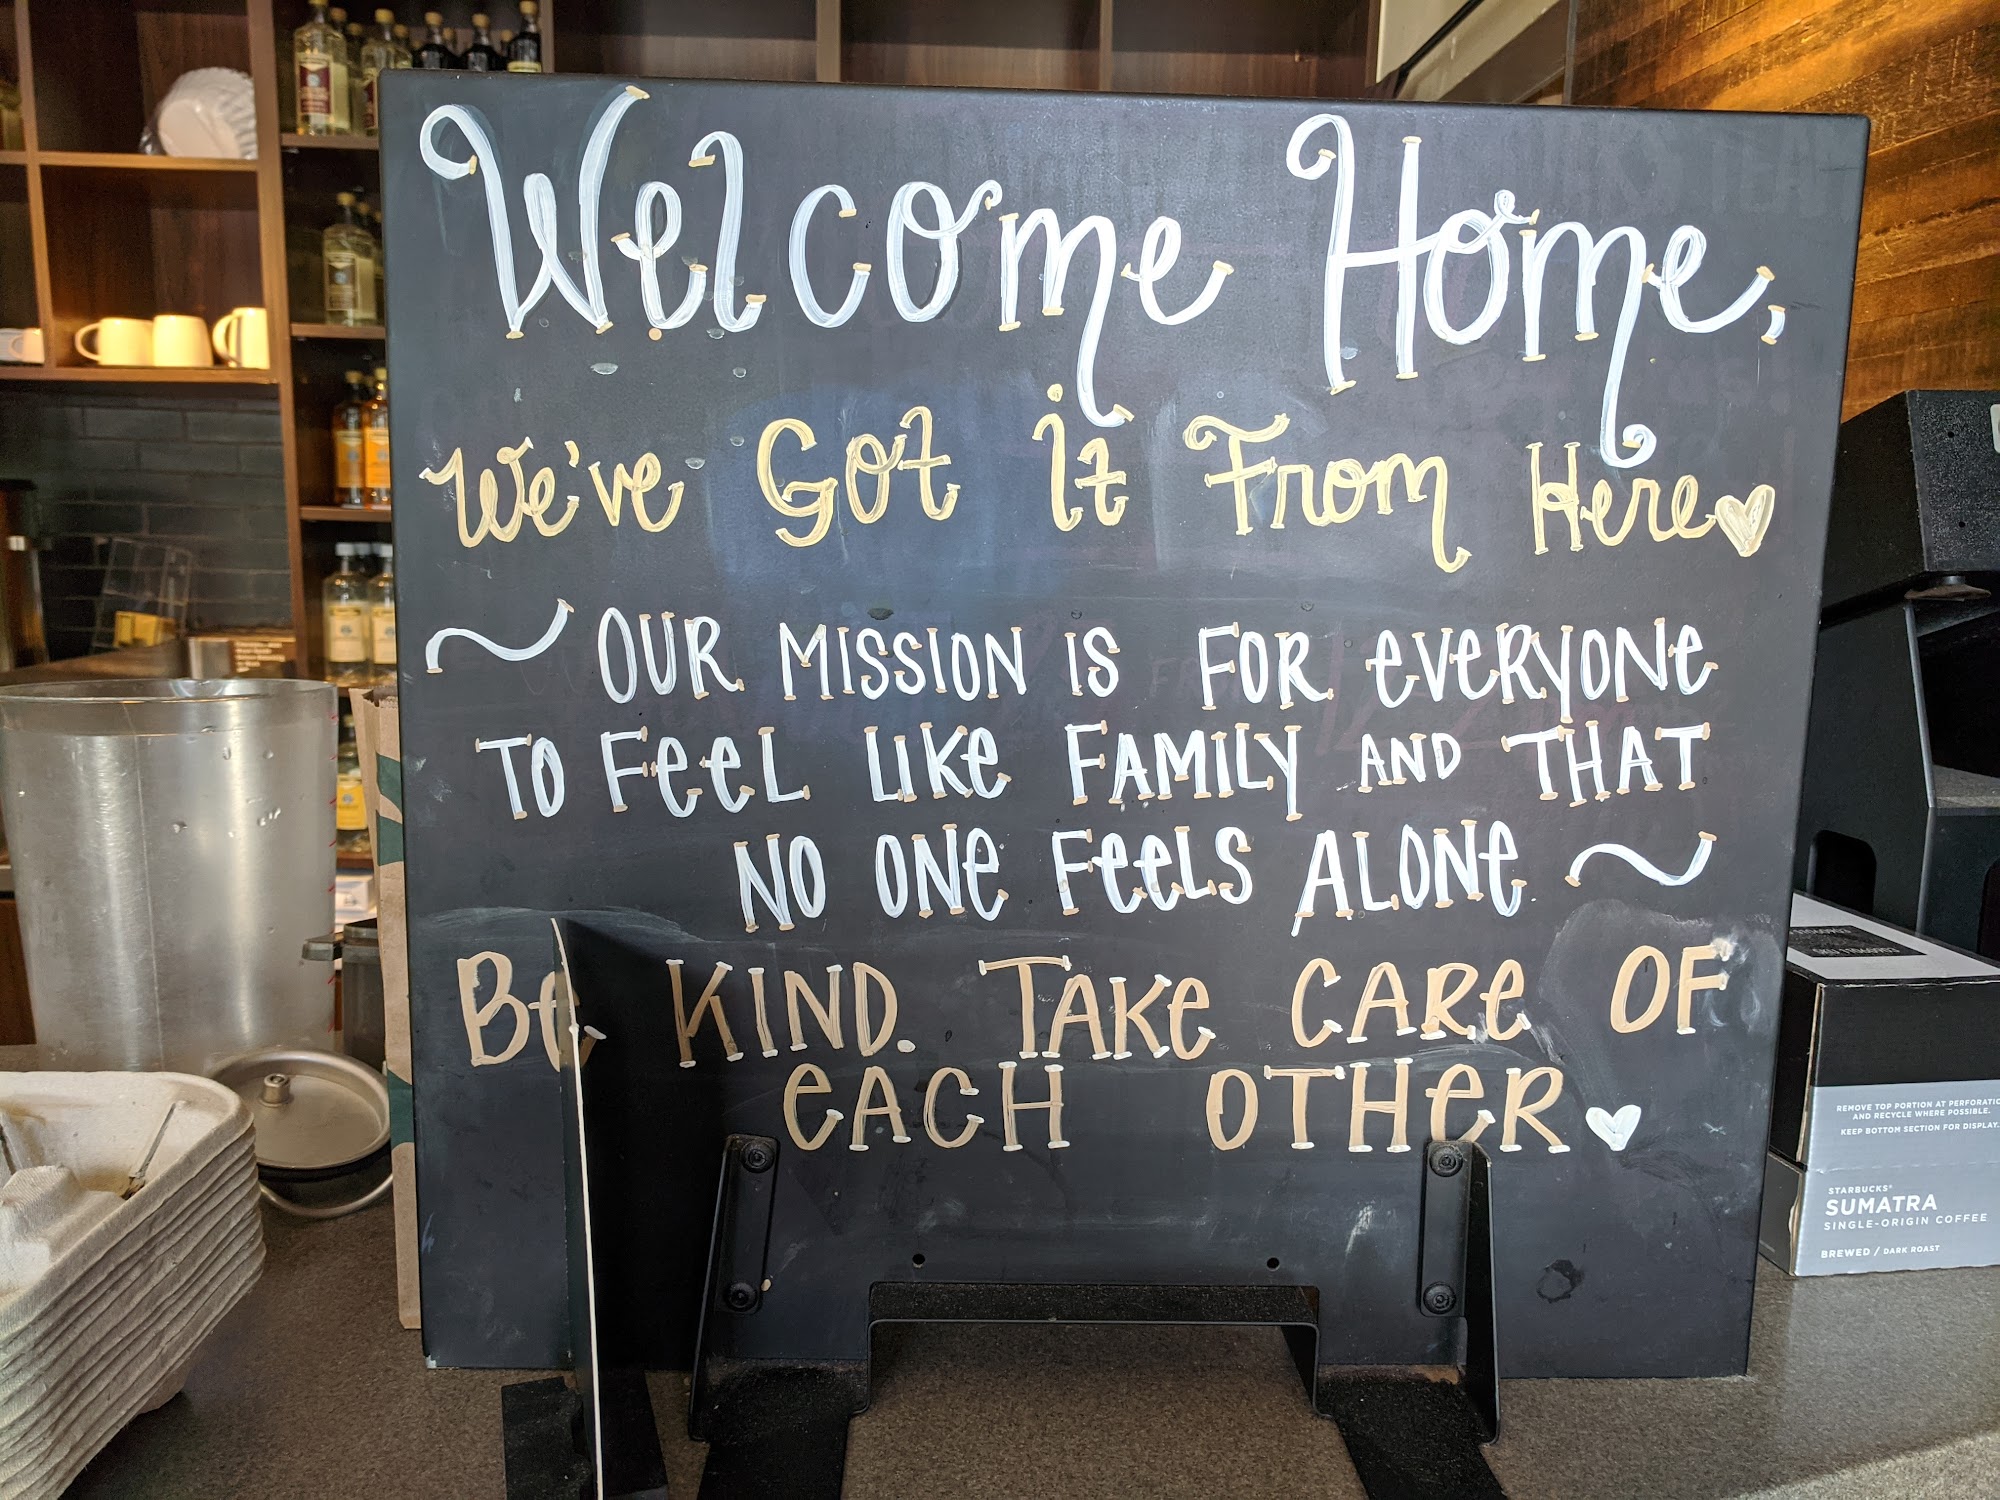 Welcome Home,
We've Got it From Here
OUR MISSION IS FOR eVeRYONe
TO FeeL LIKe FAMILY AND THAT
NO ONe FeeLS ALONe
Be KIND. TAKe CARe OF
eACH OTHeR
REMOVE TOP PORTION AT
AND RECYCLE WHERE POSSIBLE.
KEEP BOTTOM SECTION FOR DISPLAY.
STARBUCKS®
SUMATRA
SINGLE-ORIGIN COFFEE
BREWED / DARK ROAST